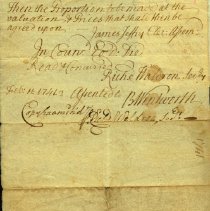 then the Proportion to be made at the
valuation & Prices that shall then be
agreed upon
James Jeffry Cler. Assm.
In Coun.
Read & Concurred
Richd Waldron Secry
Feb. 1741/2 Assented to
B Wentworth
Copy Examined
Waldron Secry